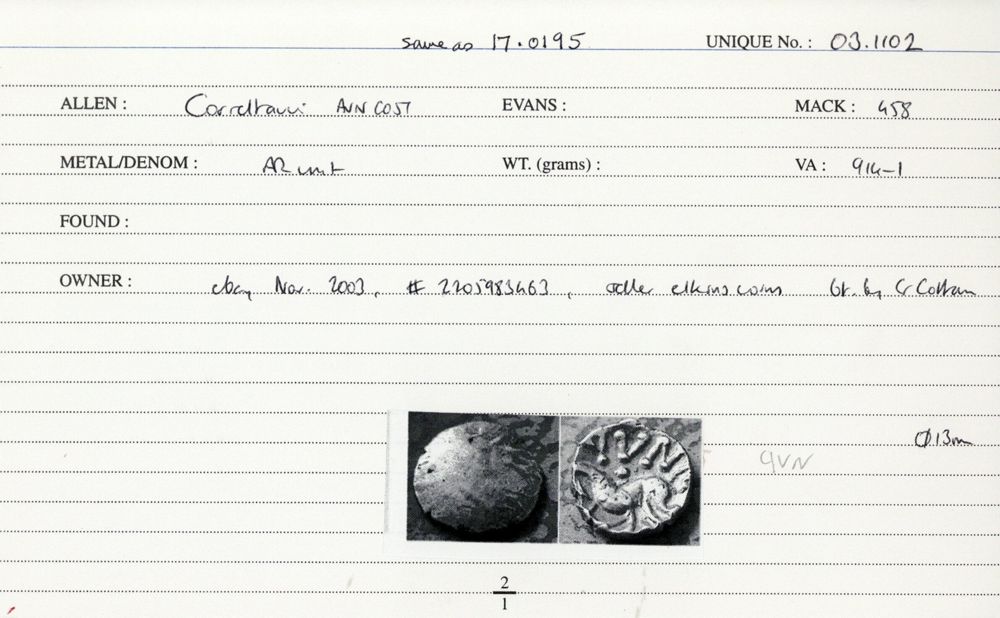 same as 17.0195 UNIQUE No. : 03.1102
ALLEN : Corieltauvi AVN COST EVANS : MACK : 458
METAL/DENOM : AR unit WT. (grams) : VA : 914-1
FOUND :
OWNER : ebay Nov. 2003, # 2205983463, seller elkinscoins bt. by G Cottam
Ø 13m
AVN
2
1